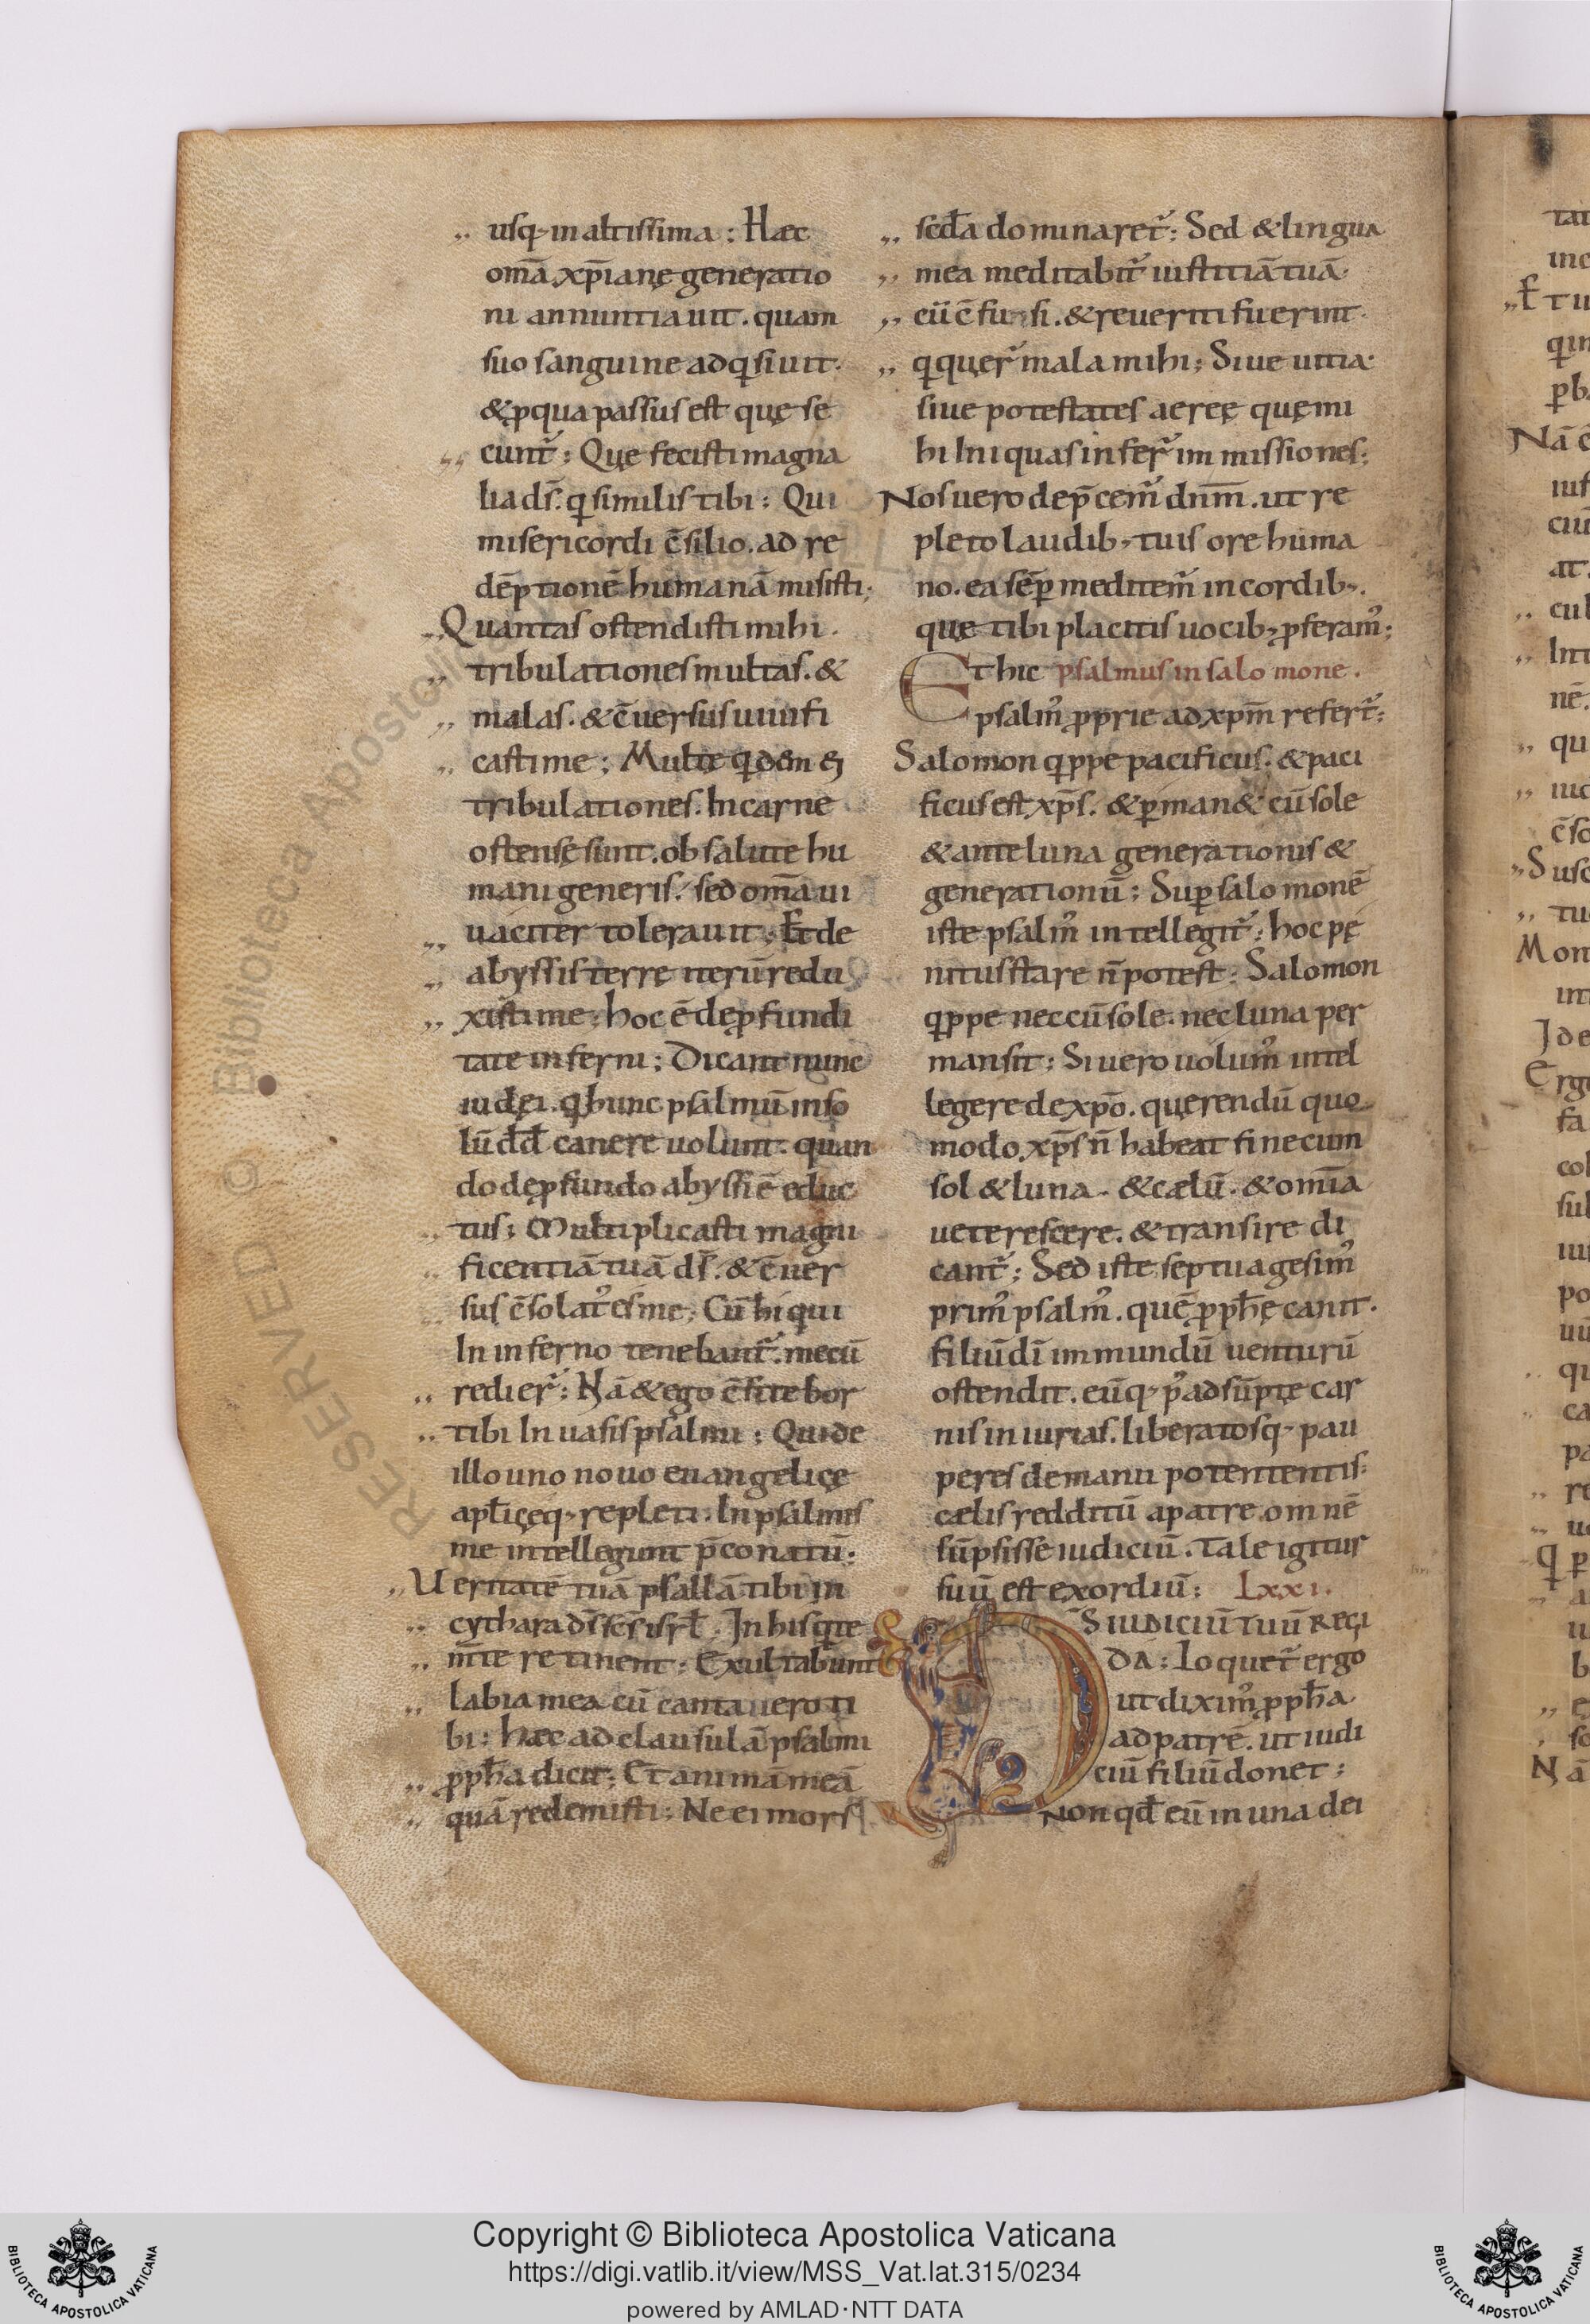 usq; in altissima : Haec
om̄a xp̄ianę generatio
ni annuntiauit . quam
suo sanguine adqͥsiuit .
& ꝓ qua passus est quę se
cunt᷑ : Quę fecisti magna
lia dſ̄ . qͥ similis tibi : Qui
misericordi c̄silio . ad re
dēptionē humanā misisti ;
Quantas ostendisti mihi .
tribulationes multas . &
malas . & c̄uersus uiuifi
casti me ; Multę qͥdem ei
tribulationes . In carne
ostensę sunt . ob salute hu
mani generis . sed om̄a ui
uaciter tolerauit ; Et de
abyssis terrę iterū redu
xisti me : hoc ē de ꝓfundi
tate inferni ; Dicant nunc
iudei . qͥ hunc psalmū in so
lū dd̄ canere uolunt . quan
do de ꝓfundo abyssi ē educ
tus ; Multiplicasti magni
ficentiā tuā dſ̄ . & c̄uer
sus c̄solatꝰ es me ; Cū hi qui
In inferno tenebant᷑ . mecū
redier̄ : Nā & ego c̄fitebor
tibi In uasis psalmi ; Qui de
illo uno nouo euangelicę
apl̄icęq; repleti . In psalmis
me intellegunt p̄conatū :
Ueritatē tuā psallā tibi in
cythara dſ̄ sc̄s isrl̄ . In his qͥte
m̄te retinent : Exultabunt
labia mea cū cantauero ti
bi : haec ad clausulā psalmi
ꝓph̄a dicit ; Et animā meā
quā redemisti : Ne ei mors
sed̄a dominaret᷑ : Sed & lingua
mea meditabit᷑ iustitiā tuā .
cū c̄fusi . & reueriti fuerint .
qͥ quęr̄ mala mihi ; Siue uitia .
siue potestates aereę quę mi
hi Iniquas infer̄ immissiones ;
Nos uero dep̄cem᷑ dnm̄ . ut re
pleto laudib; tuis ore huma
no . ea sēꝑ meditem᷑ in cordib; .
quę tibi placitis uocib; ꝓferamꝰ ;
Et hic psalmus in salomone .
psalmꝰ ꝓprie ad xpm̄ refert᷑ ;
Salomon qͥppe pacificus . & paci
ficus est xp̄s . & ꝑman& cū sole
& ante luna generationis &
generationū ; Suꝑ salomonē
iste psalmꝰ intellegit᷑ ; hoc pę
nitus stare n̄ potest : Salomon
qͥppe nec cū sole . nec luna per
mansit : Si uero uolumꝰ intel
legere de xpō . querendū quo
modo . xp̄s n̄ habeat fine cum
sol & luna . & cælū . & omīa
ueterescere . & transire di
cant᷑ ; Sed iste septuagesimꝰ
primꝰ psalmꝰ . quē ꝓph̄ę canit .
filiū dī in mundū uenturū
ostendit . eūq; p̄ adsūptę car
nis iniurias . liberatosq; pau
peres de manu potententis .
cælis redditū a patre . omnē
sūpsisse iudiciū . Tale igitur
suū est exordiū : Lxxi .
DS̄ IUDICIŪ TUŪ REGI
DA : Loquet᷑ ergo
ut diximꝰ ꝓph̄a
ad patrē . ut iudi
ciū filiū donet ;
Non qd̄ eū in una dei
Copyright © Biblioteca Apostolica Vaticana
https://digi.vatlib.it/view/MSS_Vat.lat.315/0234
powered by AMLAD·NTT DATA